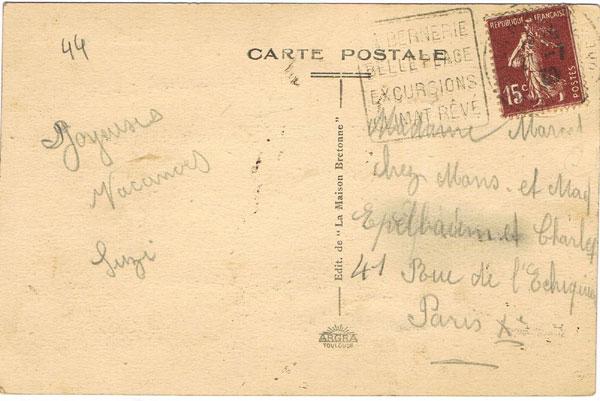 44
CARTE POSTALE
LA BERNERIE
BELLE PLAGE
EXCURSIONS
CLIMAT RÊVÉ
REPUBLIQUE FRANÇAISE
15c
POSTES
Joyeuses
Vacances
Suzi
Edit. de "La Maison Bretonne"
ARGRA
TOULOUSE
Madame Marcel
chez Mons. et Mad
Epelbaum et Charles
41 Rue de l'Echiquier
Paris Xe